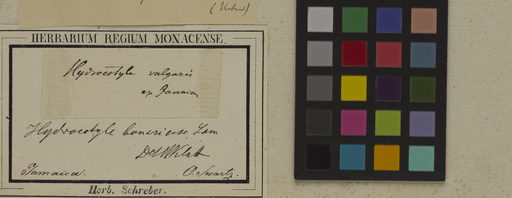 (Urban)
HERBARIUM REGIUM MONACENSE.
Hydrocotyle vulgaris
ex Jamaica
Hydrocotyle bonariense Lam
Det WKlatt
Jamaica. O. Swartz.
Herb. Schreber.